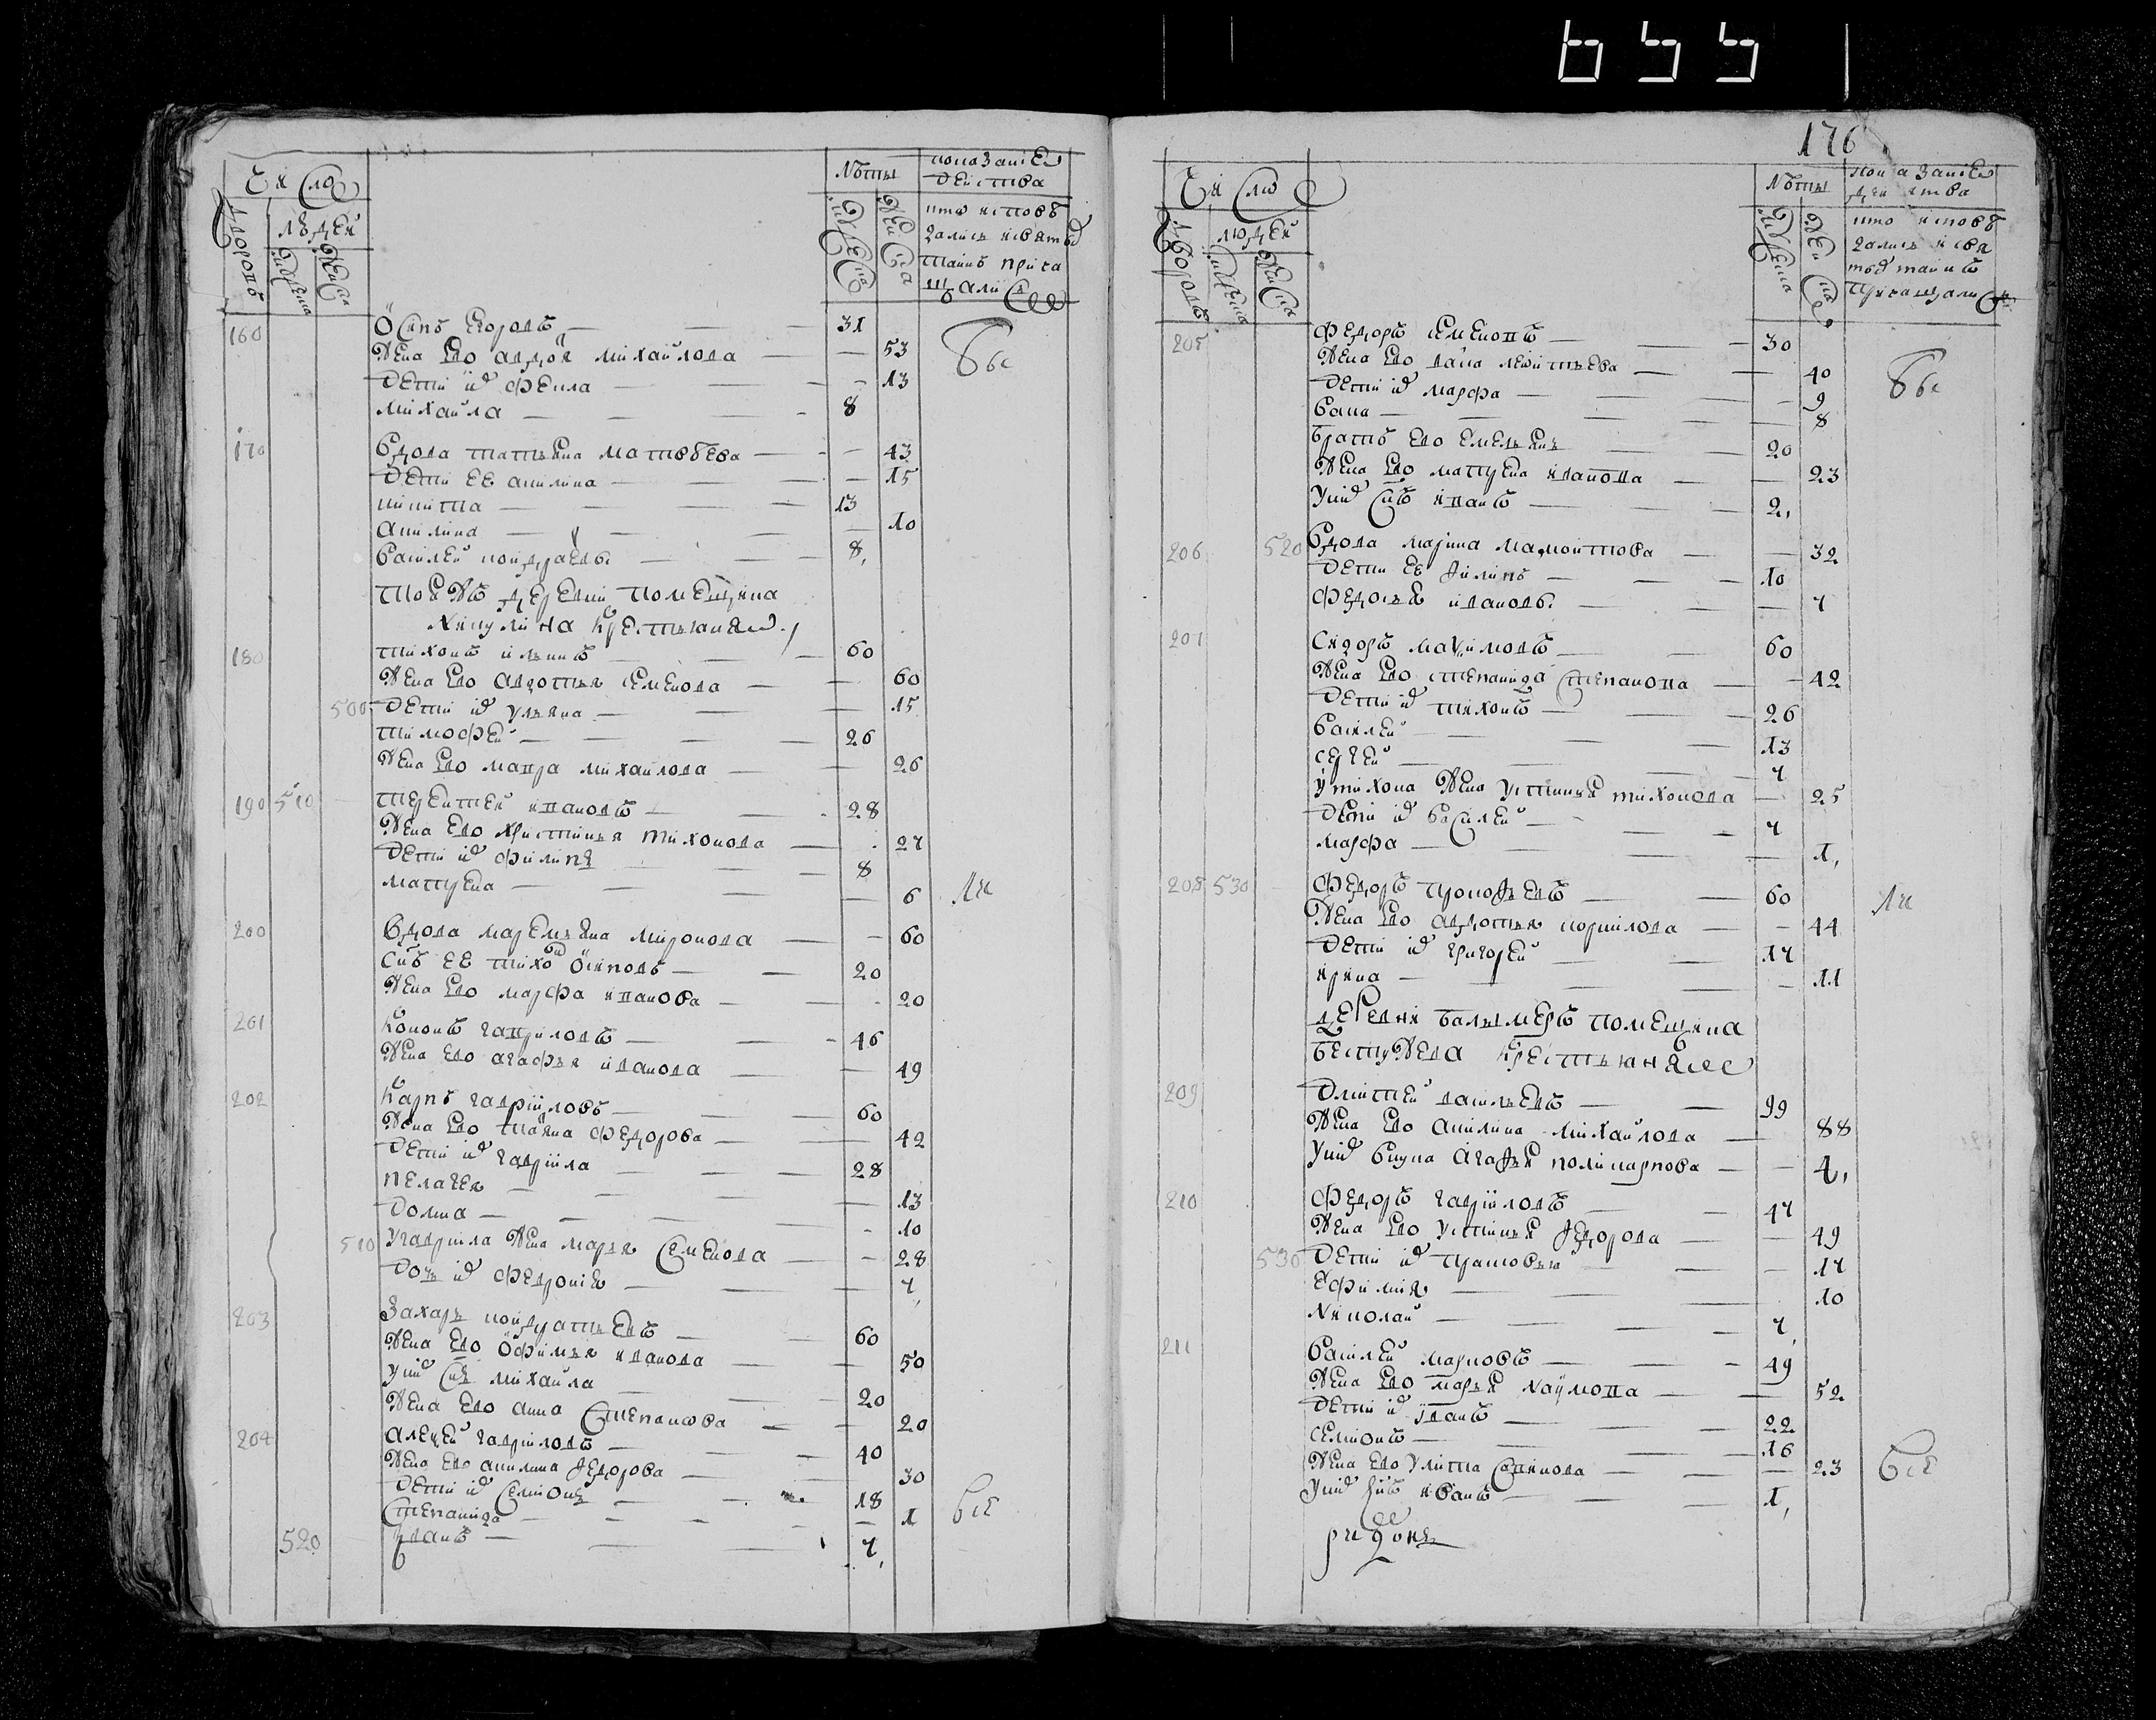 число
дворовъ
людей
мужеска
женска
Лѣты
мужеска
женска
показание
действа
кто исповѣ
дались и святых
таинъ прича
щались
160
Осипъ Егоровъ 31
Жена Его авдотя михайлова 53
дети их фекла 13
михайла 8
170
вдова татьяна матвѣева 43
дети ее акилина 15
никита 13
акилина 10
василей кондратьевъ 8
тоя жъ деревни помещика
Никулина крестьяня
180
тихонъ ильинъ 60
Жена Ево авдотья семенова 60
500 дети их ульяна 15
тимофей 26
Жена Ево мавра михайлова 26
190 510
терентей ивановъ 28
Жена Ево христинья тихонова 27
дети их филипъ 8
матрена 6
200
вдова маремьяна миронова 60
сынъ ее тихонъ Осиповъ 20
Жена Ево марфа иванова 20
201
Кононъ гавриловъ 46
Жена Ево агафья иванова 49
202
Карпъ гавриловъ 60
Жена Ево татьяна федорова 42
дети их гаврила 28
пелагея 13
домна 10
510 у гаврила жена марья семенова 28
дочь их феврония 7
203
Захаръ кондратьевъ 60
Жена Ево Офимья иванова 50
у них сынъ михайла 20
Жена Ево анна Степанова 20
204
алексей гавриловъ 40
Жена Ево акилина федорова 30
дети их семионъ 18
степанида 1
520
иванъ 7
все
176
число
дворовъ
людей
мужеска
женска
Лѣты
мужеска
женска
показание
действа
кто исповѣ
дались и свя
тых таинъ
причащались
205
федоръ семеновъ 30
дети их марфа 9
8
братъ Ево Емельянъ 20
Жена Ево матрена иванова 23
у них сынъ иванъ 2
206 520
вдова марина мамонтова 32
дети ее филипъ 10
федосья иванова 7
207
Сидоръ максимовъ 60
Жена Ево степанида степанова 42
дети их тихонъ 26
василей 13
сергей 7
у тихона жена устинья тихонова 25
дети их василей 7
марфа 1
208 530
федоръ прокофьевъ 60
Жена Ево авдотья корнилова 44
дети их григорей 17
ирина 11
деревни балымеръ помещика
бестужева крестьяня
209
дмитрей васильевъ 99
Жена Ево акилина михайлова 88
у них внука агафья поликарпова
210
федоръ гавриловъ 47
Жена Ево устинья федорова 49
530 дети их прасковья 17
ефимия 10
николай 7
211
василей марковъ 49
Жена Ево марья наумова 52
дети их иванъ 22
семионъ 16
Жена Ево улита 23
у них сынъ иванъ 1
все